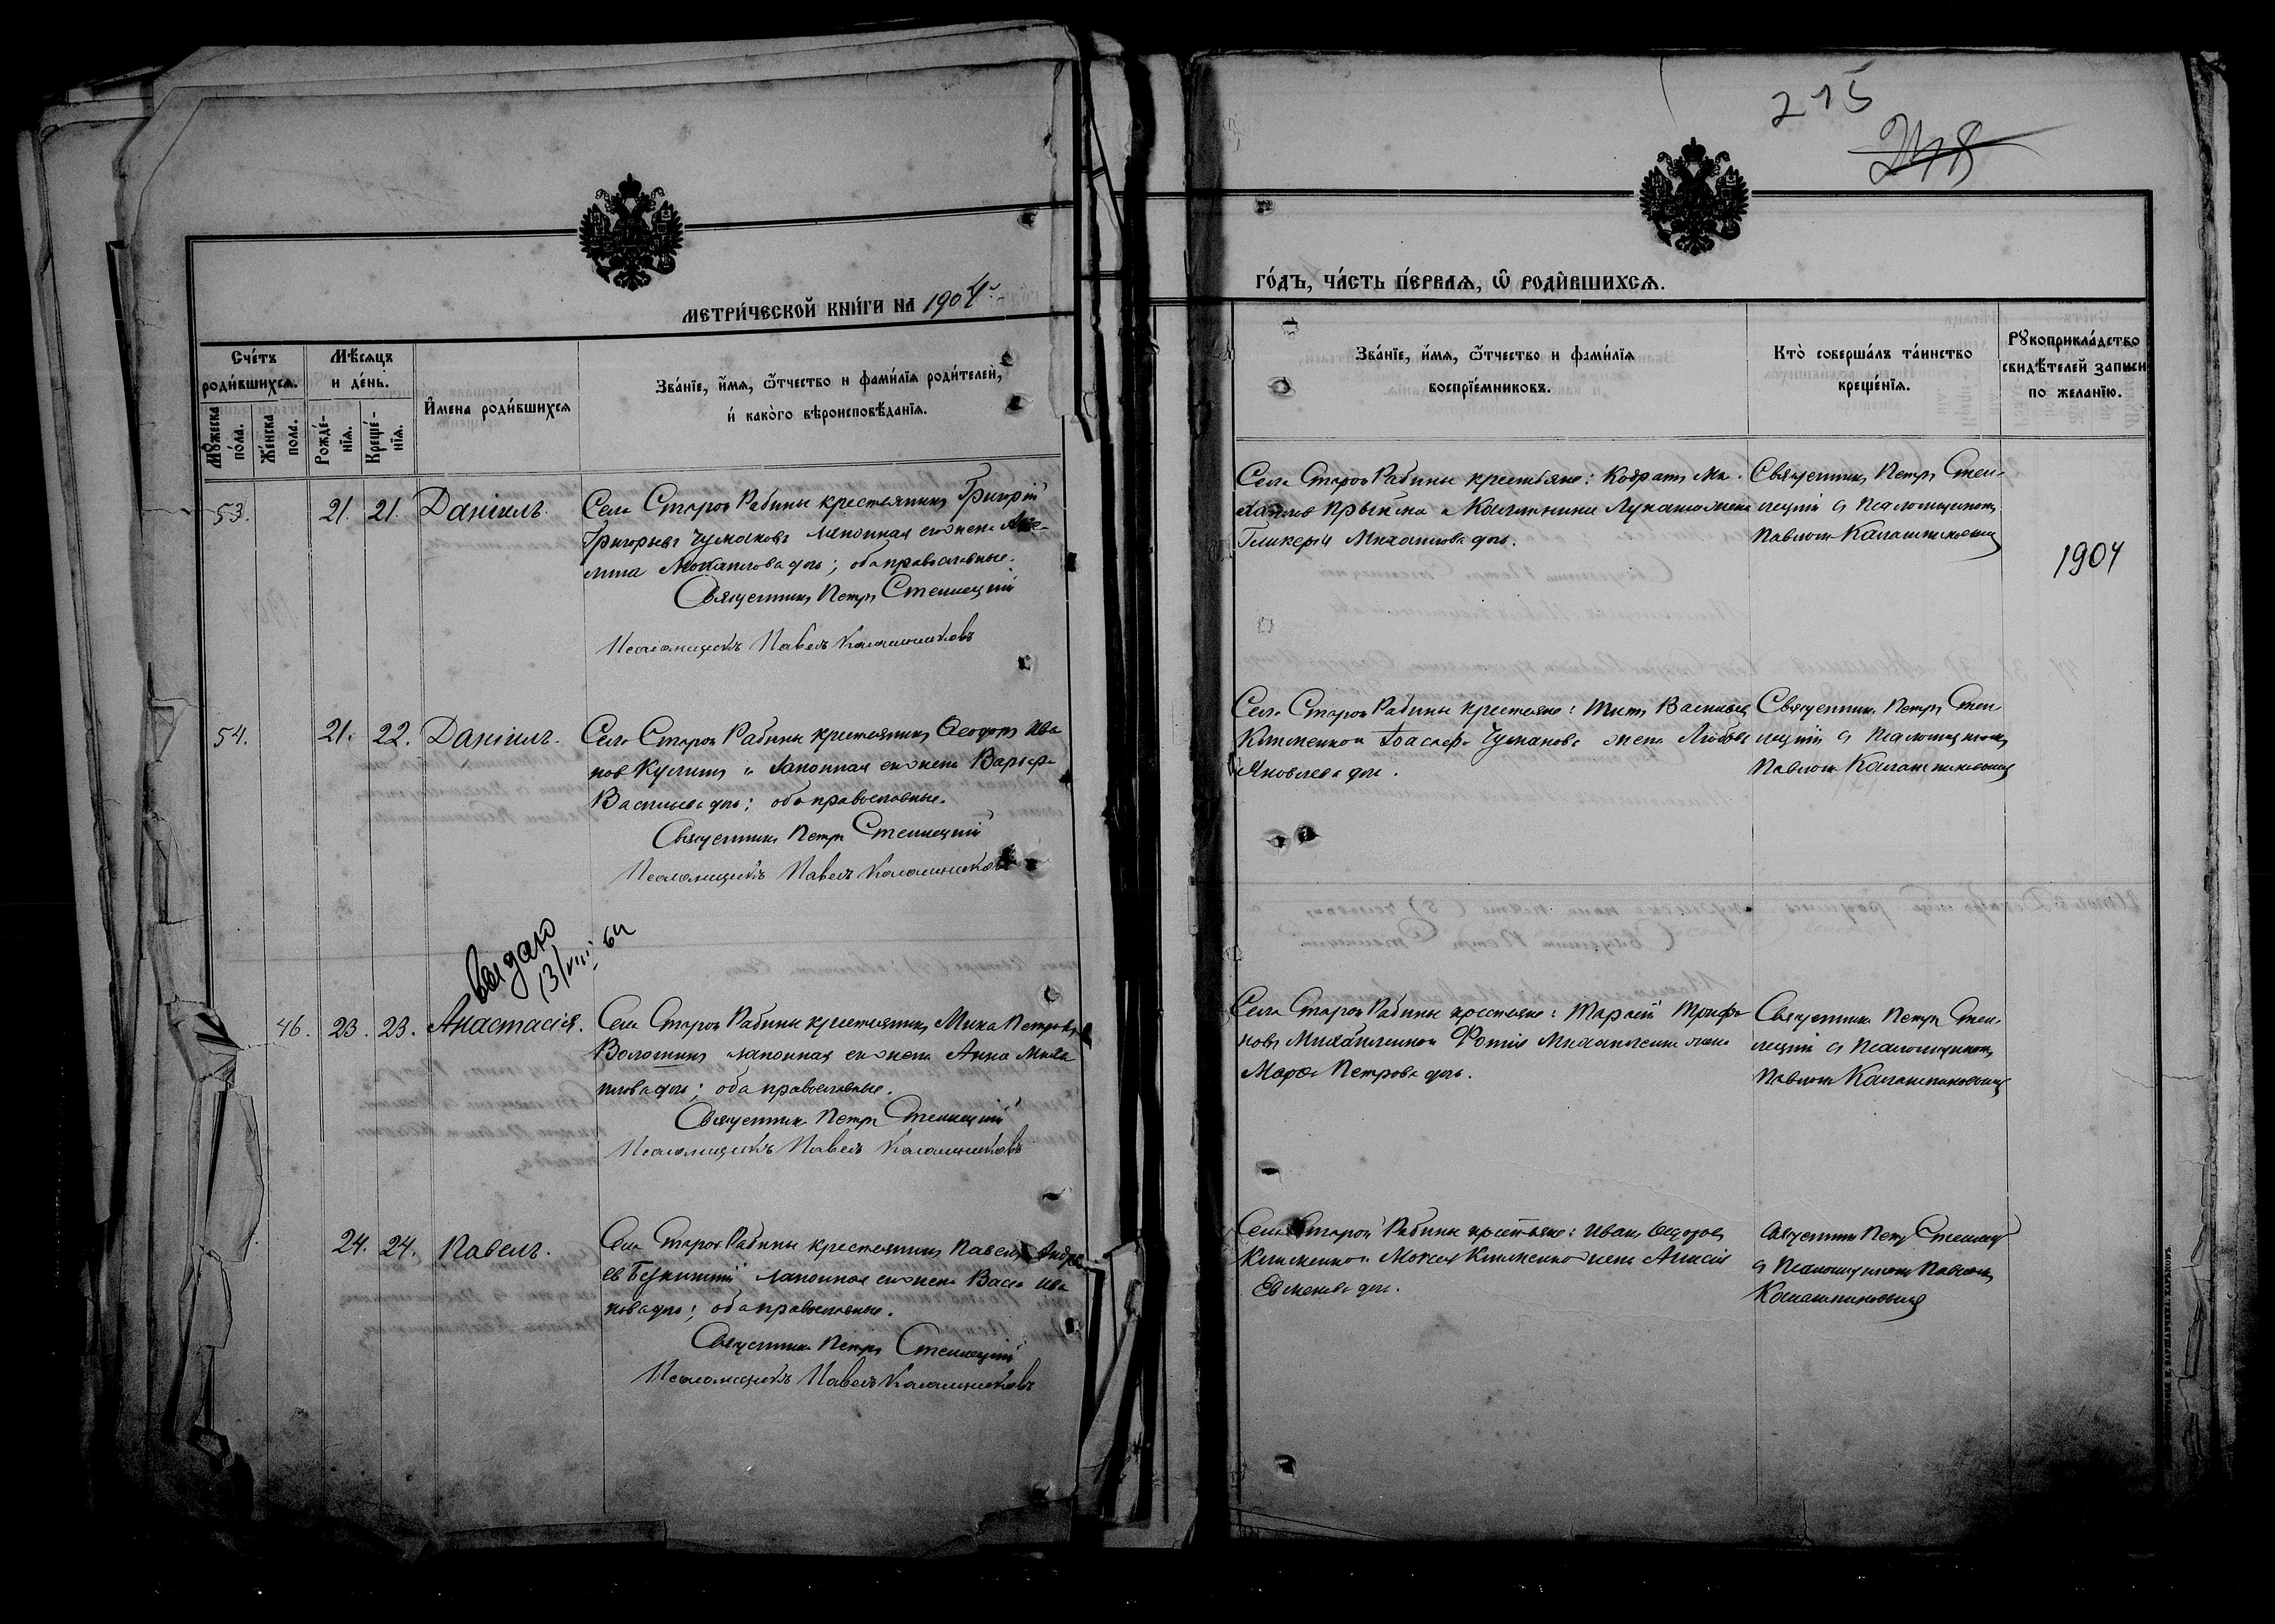 215
248
МЕТРИ́ЧЕСКОЙ КНИ́ГИ НА 1904
ГО́ДЪ, ЧА́СТЬ ПЕ́РВАѦ, Ѽ РОДИ́ВШИХСѦ.
Сче́тъ роди́вшихсѧ.
Мꙋ́жеска по́ла.
Же́нска пола.
Мѣ́сѧцъ и де́нь.
Рожде́нїѧ.
Креще́нїѧ.
И́мена роди́вшихсѧ
Зва́нїе, и́мѧ, ѻ́тчество и фами́лїѧ роди́телей,
и́ како́го вѣроисповѣ́данїѧ.
Зва́нїе, и́мѧ, ѻ́тчество и фами́лїѧ
воспрїе́мниковъ.
Кто̀ соверша́лъ та́инство
креще́нїѧ.
Рꙋкоприкла́дство
свидѣ́телей записи
по жела́нїю.
53. 21. 21. Даніилъ.
Села Старой Рабины крестьянинъ Григорій
Григорьевъ Чумаковъ законная его жена
дочь; оба православные.
Священникъ Петръ Стеллецкій
Псаломщикъ Павелъ Калашниковъ
Села Старой Рабины крестьяне: Кодратъ Ми-
хаиловъ и жена
Гликерія Михаилова дочь.
Священникъ Петръ Стел-
лецкій съ Псаломщикомъ
Павломъ Калашниковымъ
1904
54. 21. 22. Даніилъ.
Села Старой Рабины крестьянинъ Ѳеодотъ Ива
новъ и законная его жена Варвара
Васильева дочь; оба православные.
Священникъ Петръ Стеллецкій
Псаломщикъ Павелъ Калашниковъ
Села Старой Рабины крестьяне: Титъ Васильевъ
Клименко и Іоасафа Чумакова жена Любовь
Яковлева дочь.
Священникъ Петръ Стел
лецкій съ Псаломщикомъ
Павломъ Калашниковымъ
Выдано
13/VIII 64
46. 23. 23. Анастасія.
Села Старой Рабины крестьянинъ Мина Петровъ
Волошинъ законная его жена Анна Миха
илова дочь; оба православные.
Священникъ Петръ Стеллецкій
Псаломщикъ Павелъ Калашниковъ
Села Старой Рабины крестьяне: Тарасій Трифо
новъ Михайленко и Михайленка жена
Марѳа Петрова дочь.
Священникъ Петръ Стел-
лецкій съ Псаломщикомъ
Павломъ Калашниковымъ
24. 24. Павелъ.
Села Старой Рабины крестьянинъ Павелъ Андре
евъ законная его жена Васса Ива
нова дочь; оба православные.
Священникъ Петръ Стеллецкій
Псаломщикъ Павелъ Калашниковъ
Села Старой Рабины крестьяне: Иванъ Ѳедоровъ
Клименко и Моисея Клименко жена Анисія
Евменева дочь.
Священникъ Петръ Стеллецкій
съ Псаломщикомъ Павломъ
Калашниковымъ